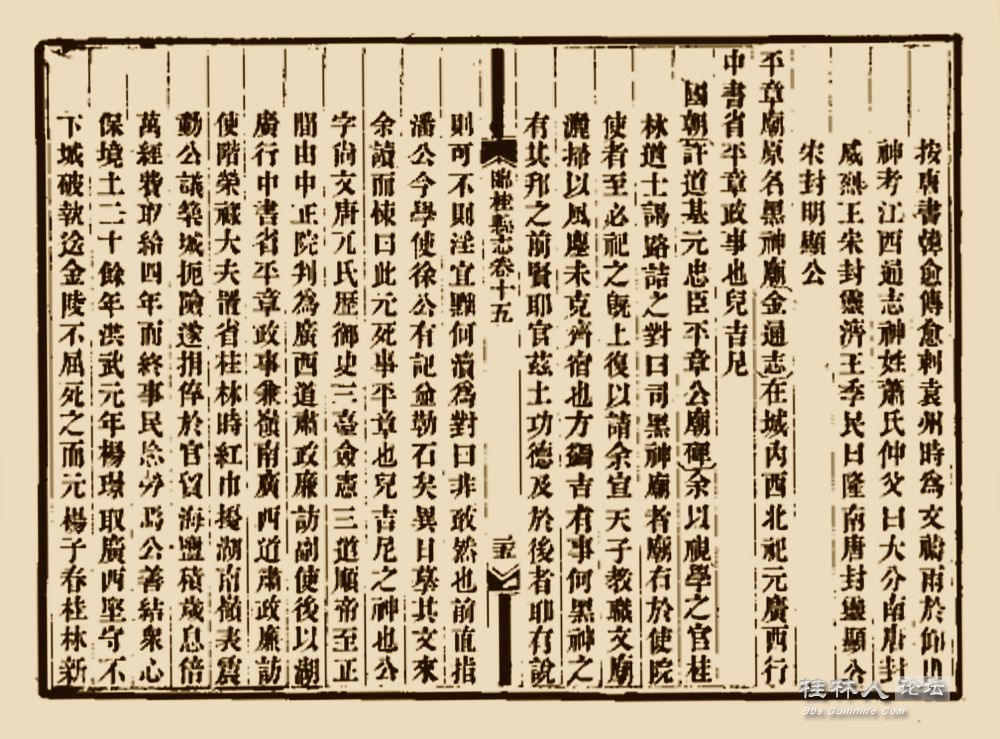 按唐書韓愈傳愈刺袁州時為文禱雨於仰山
神考江西通志神姓蕭氏仲父曰大分南唐封
威烈王宋封靈濟王季民曰隆南唐封靈顯公
宋封明顯公
平章廟原名黑神廟金通志在城內西北祀元廣西行
中書省平章政事也兒吉尼
國朝許道基元忠臣平章公廟碑余以視學之官桂
林道士謁路詰之對曰司黑神廟者廟右於使院
使者至必祀之既上復以請余宣天子教職文廟
灑掃以風塵未克齊宿也方蠲吉有事何黑神之
有其邦之前賢耶官茲土功德及於後者耶有說
臨桂縣志卷十五
則可不則淫宜黜何瀆為對曰非敢然也前直指
潘公今學使徐公有記盒勒石矣異日摹其文來
余讀而悚曰此元死事平章也兒吉尼之神也公
字尚文唐兀氏歷御史三臺僉憲三道順帝至正
間由中正院判為廣西道肅政廉訪副使後以湖
廣行中書省平章政事兼嶺南廣西道肅政廉訪
使階榮祿大夫置省桂林時紅巾擾湖南嶺表震
動公議築城扼險遂捐俸於官貿海鹽積歲息倍
萬經費取給四年而終事民忘勞焉公善結衆心
保境土二十餘年洪武元年楊璟取廣西堅守不
下城破執送金陵不屈死之而元楊子春桂林新
桂林人论坛
Bbs.Guilinlife.Com